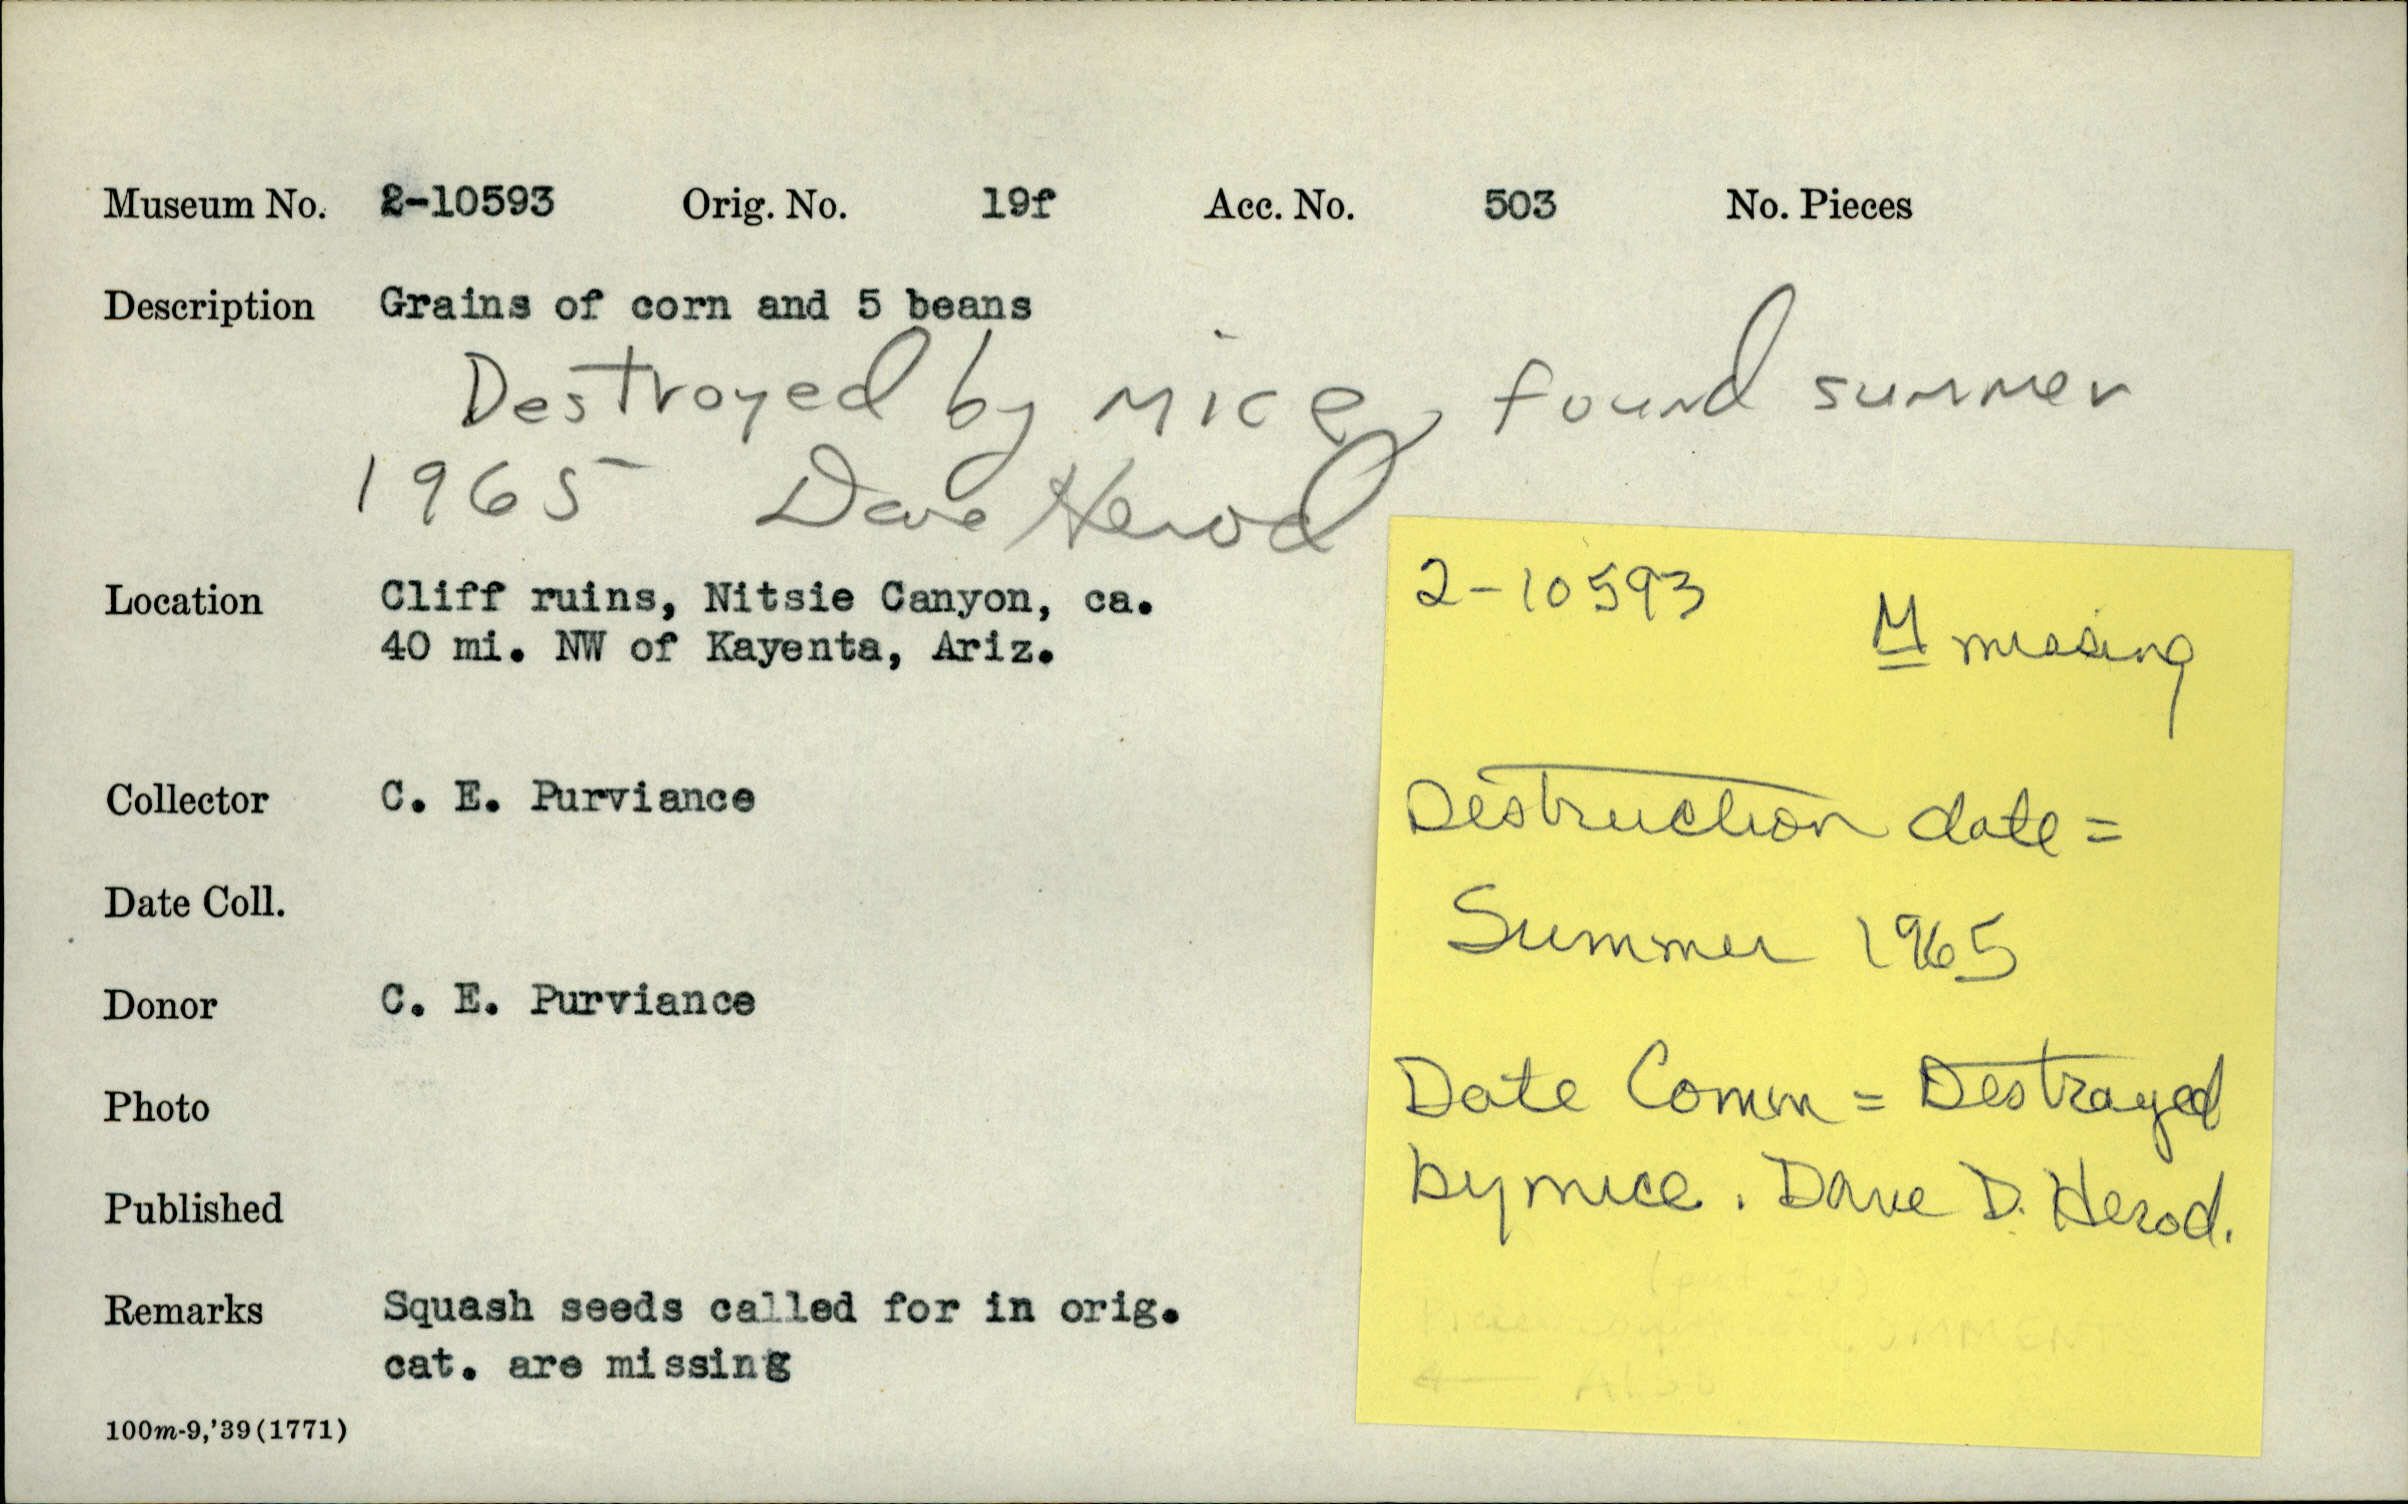 Museum No. 2-10593 Orig. No. 19f Acc. No. 503 No. Pieces
Description Grains of corn and 5 beans
Destroyed by mice, found summer
1965 Dave Herod
Location Cliff ruins, Nitsie Canyon, ca.
40 mi. NW of Kayenta, Ariz.
Collector C. E. Purviance
Date Coll.
Donor C. E. Purviance
Photo
Published
Remarks Squash seeds called for in orig.
cat. are missing
100m-9,'39(1771)
2-10593
M missing
Destruction date =
Summer 1965
Date Comm = Destroyed
by mice. Dave D. Herod.